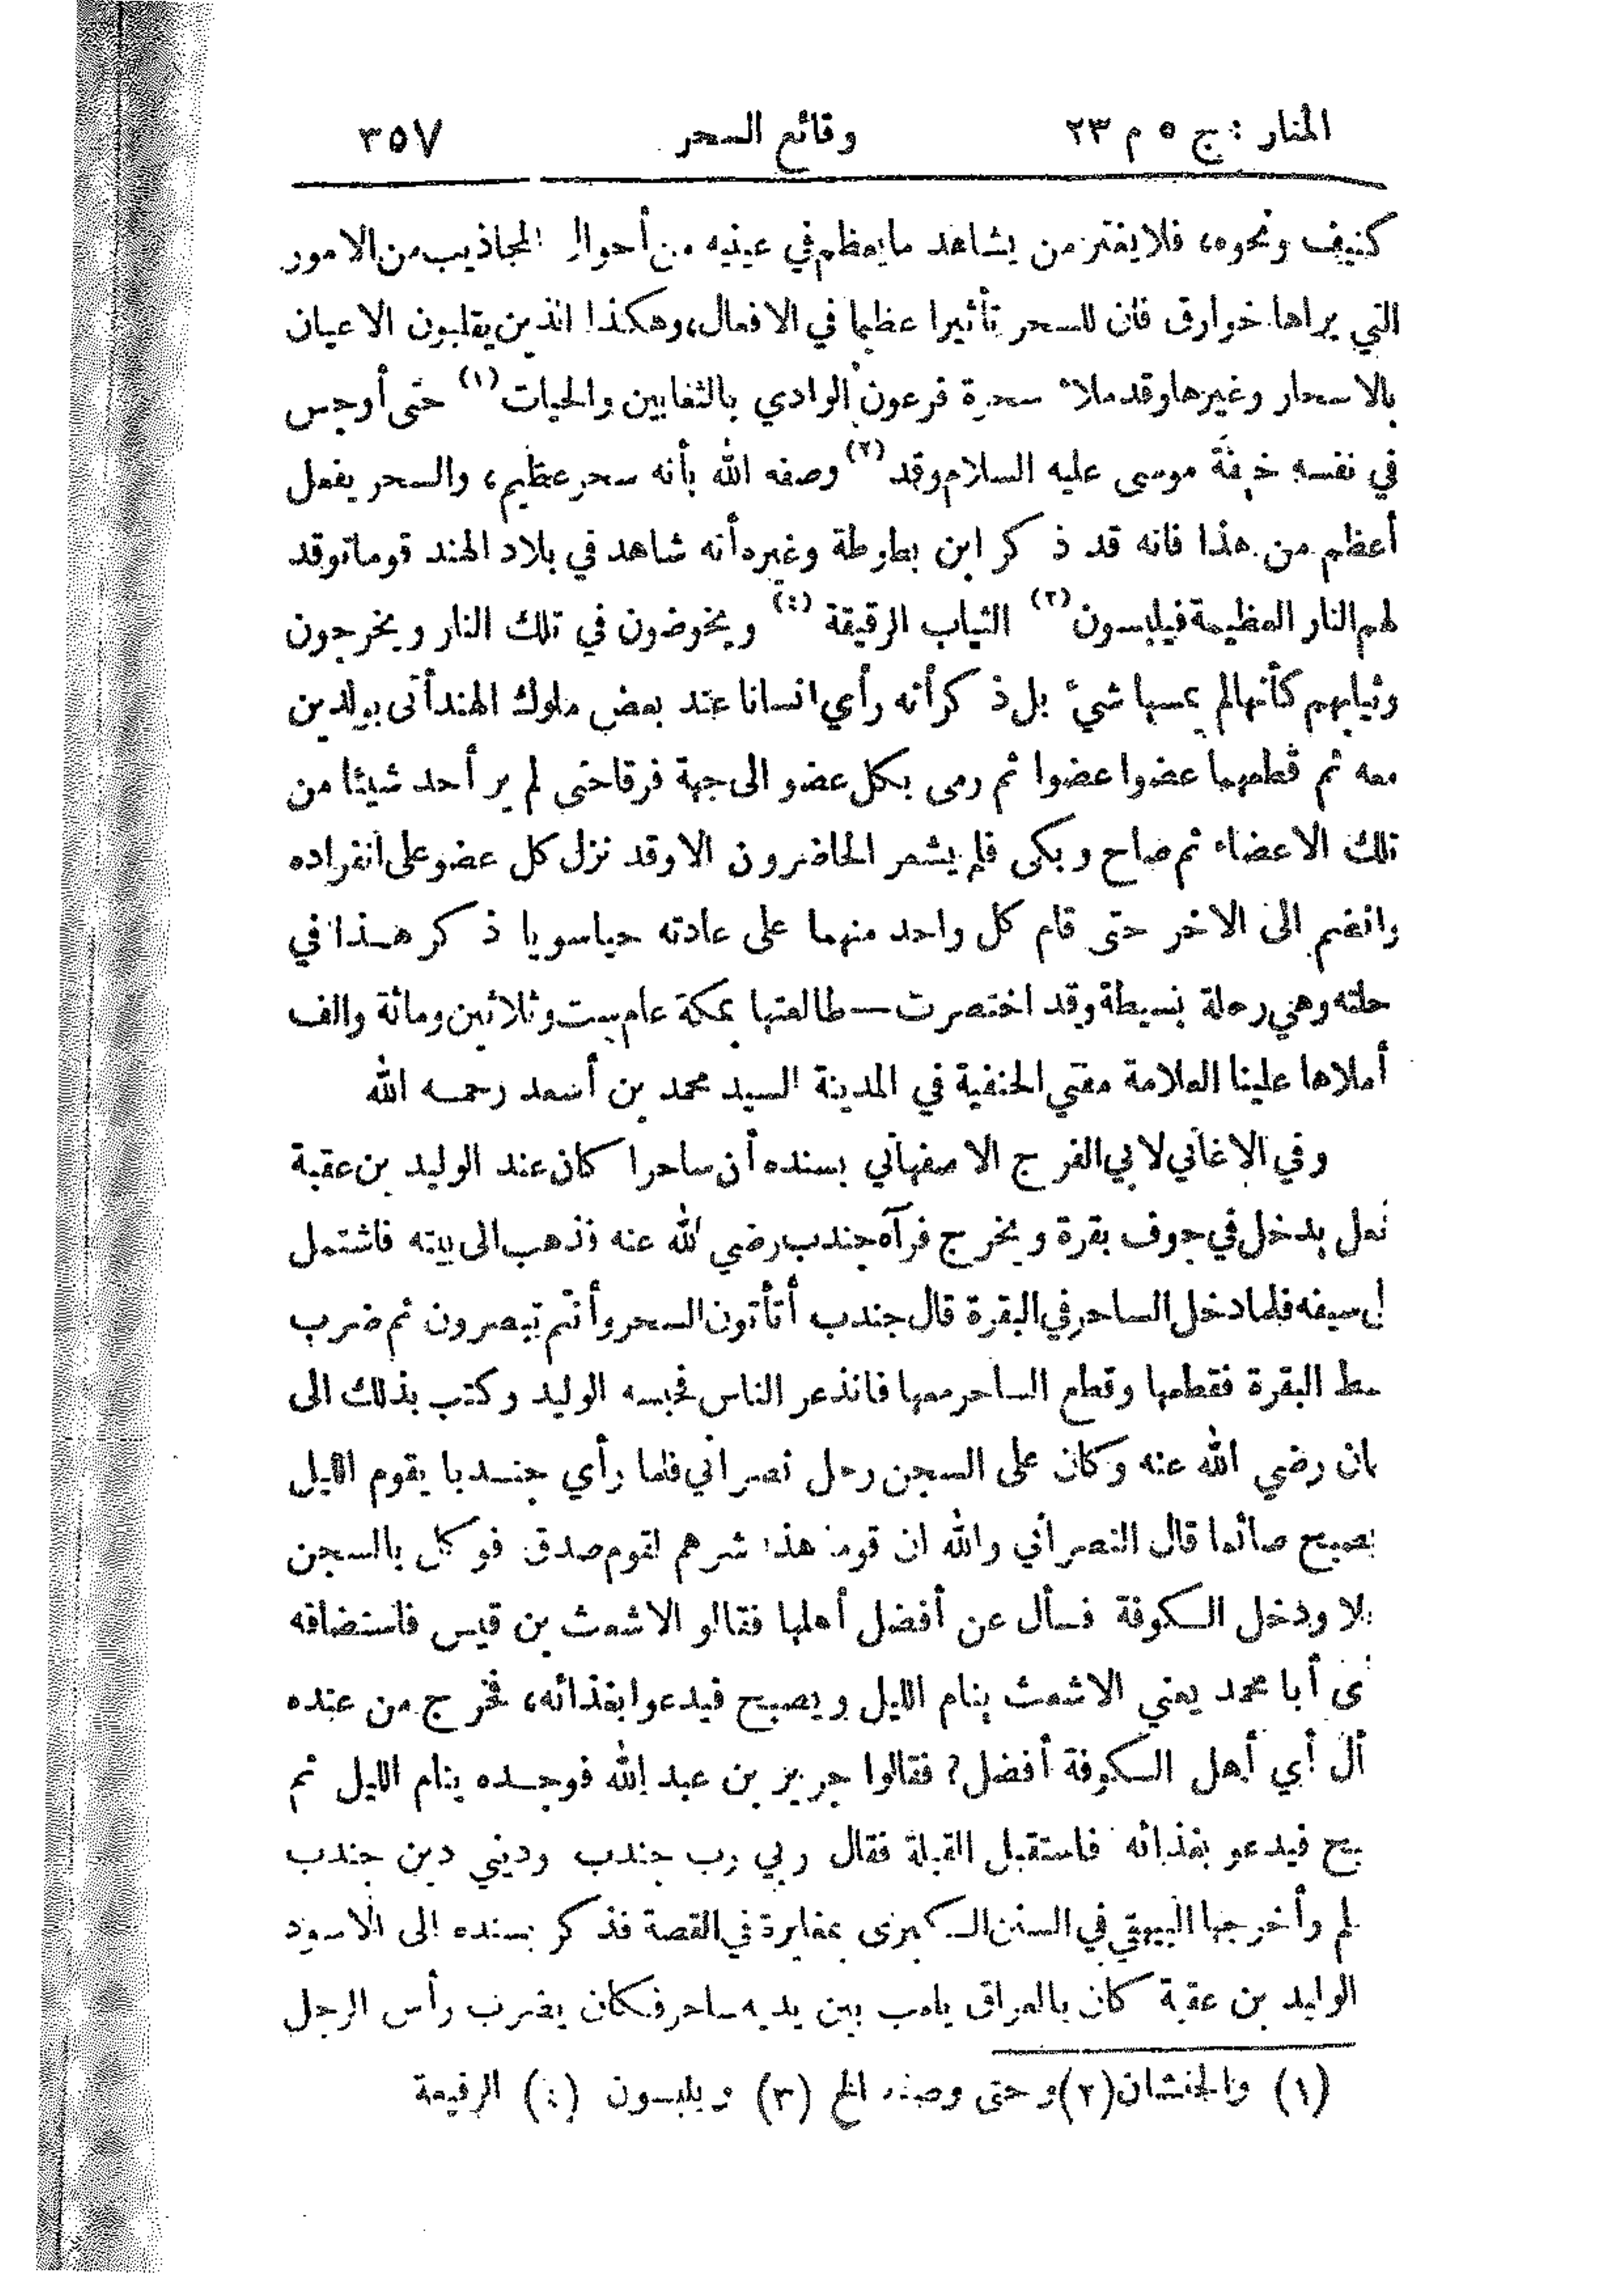 المنار : ج ٥ م ٢٣ وقائع السحر ٣٥٧
كنيف ونحوه، فلا يغتر من يشاهد ما يعظم في عينيه من أحوال المجاذيب من الامور
التي يراها خوارق فان للسحر تأثيرا عظيما في الافعال، وهكذا الذين يقلبون الاعيان
بالاسحار وغيرها وقد ملأ سحرة فرعون الوادي بالثعابين والحيات (١) حتى أوجس
في نفسه خيفة موسى عليه السلام وقد (٢) وصفه الله بأنه سحر عظيم، والسحر يفعل
أعظم من هذا فانه قد ذكر ابن بطوطة وغيره أنه شاهد في بلاد الهند قوما توقد
لهم النار العظيمة فيلبسون (٣) الثياب الرقيقة (٤) ويخوضون في تلك النار ويخرجون
وثيابهم كأنها لم يمسها شيء بل ذكر أنه رأي انسانا عند بعض ملوك الهند أتى بولدين
معه ثم قطعهما عضوا عضوا ثم رمى بكل عضو الى جهة فرقا حتى لم ير أحد شيئا من
تلك الاعضاء ثم صاح وبكى فلم يشعر الحاضرون الا وقد نزل كل عضو على انفراده
وانضم الى الاخر حتى قام كل واحد منهما على عادته حيا سويا ذكر هذا في
حلته وهي رحلة بسيطة وقد اختصرت — طالعتها بمكة عام ست وثلاثين ومائة والف
أملاها علينا العلامة مفتي الحنفية في المدينة السيد محمد بن أسعد رحمه الله
وفي الاغاني لابي الفرج الاصفهاني بسنده أن ساحرا كان عند الوليد بن عقبة
يدخل في جوف بقرة ويخرج فرآه جندب رضي الله عنه فذهب الى بيته فاشتمل
سيفه فلما دخل الساحر في البقرة قال جندب أتأتون السحر وأنتم تبصرون ثم ضرب
سط البقرة فقطعها وقطع الساحر معها فانذعر الناس فحبسه الوليد وكتب بذلك الى
ان رضي الله عنه وكان على السجن رجل نصراني فلما رأي جندبا يقوم الليل
يصبح صائما قال النصراني والله ان قوما هذا شرهم لقوم صدق فوكل بالسجن
لا ودخل الكوفة فسأل عن أفضل أهلها فقالو الاشعث بن قيس فاستضافه
ى أبا محمد يعني الاشعث ينام الليل ويصبح فيدعوا بغذائه، فخرج من عنده
أل أي أهل الكوفة أفضل؟ فقالوا جرير بن عبد الله فوجده ينام الليل ثم
بح فيدعو بغذائه فاستقبل القبلة فقال ربي رب جندب وديني دين جندب
لم وأخرجها البيهقي في السنن الكبرى بمغايرة في القصة فذكر بسنده الى الاسود
الوليد بن عقبة كان بالعراق يلعب بين يديه ساحر فكان يضرب رأس الرجل
(١) والحنشان (٢) وحتى وصفه الخ (٣) ويلبسون (٤) الرفيعة